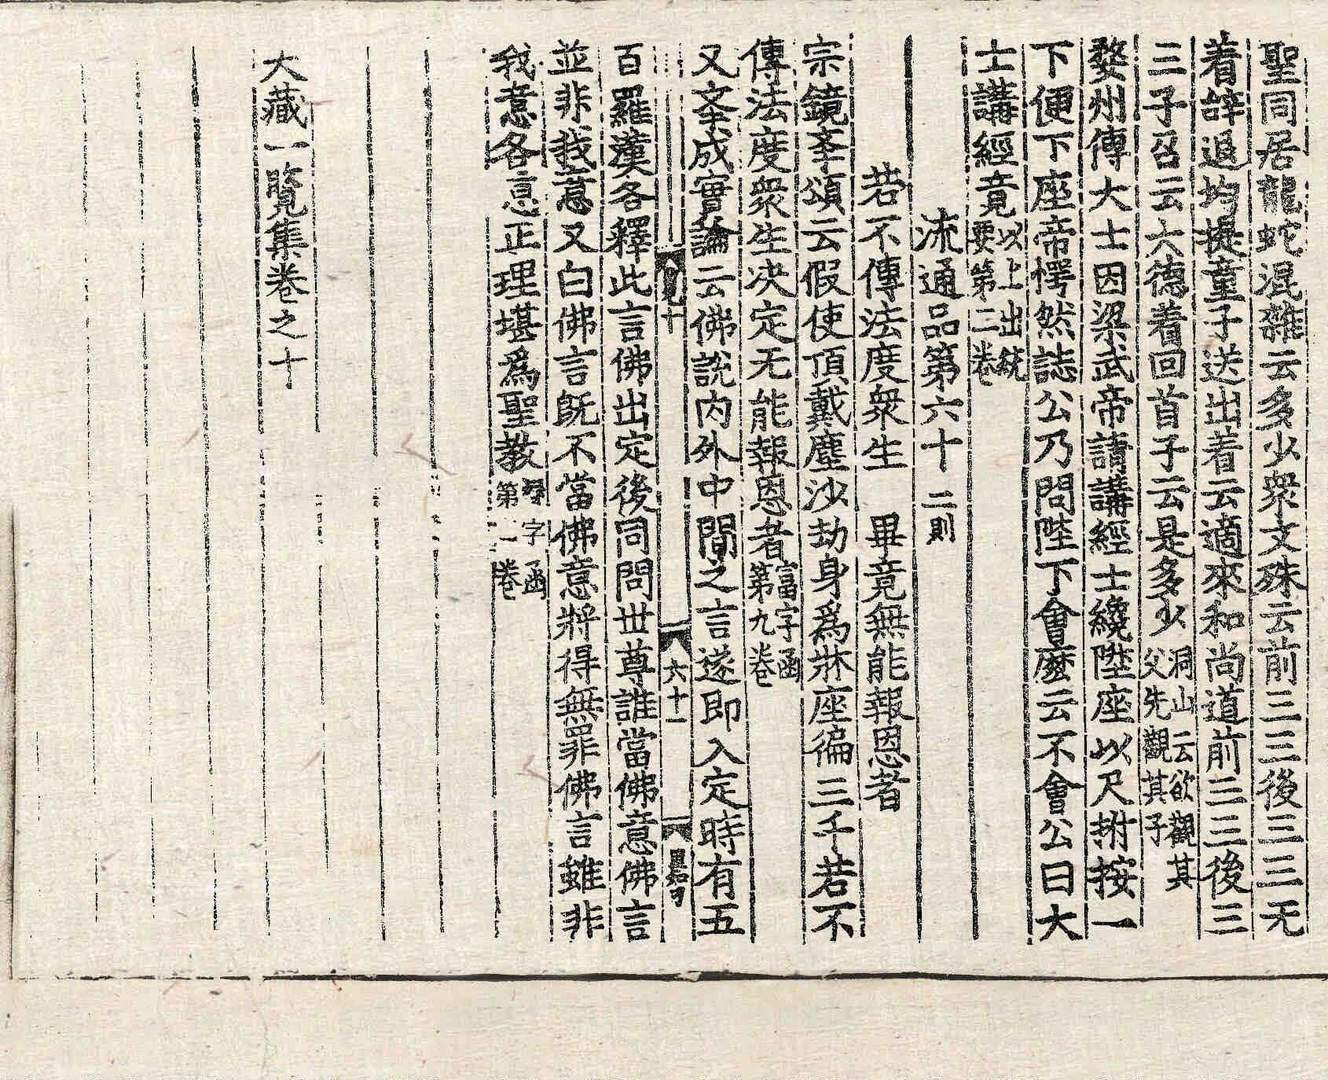 聖同居龍蛇混雜云多少衆文殊云前三三後三三无
着辝退均提童子送出着云適來和尚道前三三後三
三子召云大德着回首子云是多少洞山云欲觀其父先觀其子
婺州傳大士因梁武帝請講經士纔陞座以尺拊按一
下便下座帝愕然誌公乃問陛下會麽云不會公曰大
士講經竟以上出統要第二卷
流通品第六十二則
若不傳法度衆生　畢竟無能報恩者
宗鏡李頌云假使頂戴塵沙劫身爲牀座徧三千若不
傳法度衆生决定无能報恩者富字函第九卷
又李成實論云佛說內外中間之言遂即入定時有五
覽十　六十一
百羅漢各釋此言佛出定後同問世尊誰當佛意佛言
並非我意又白佛言旣不當佛意將得無罪佛言雖非
我意各意正理堪爲聖教字函第一卷
大藏一覽集卷之十